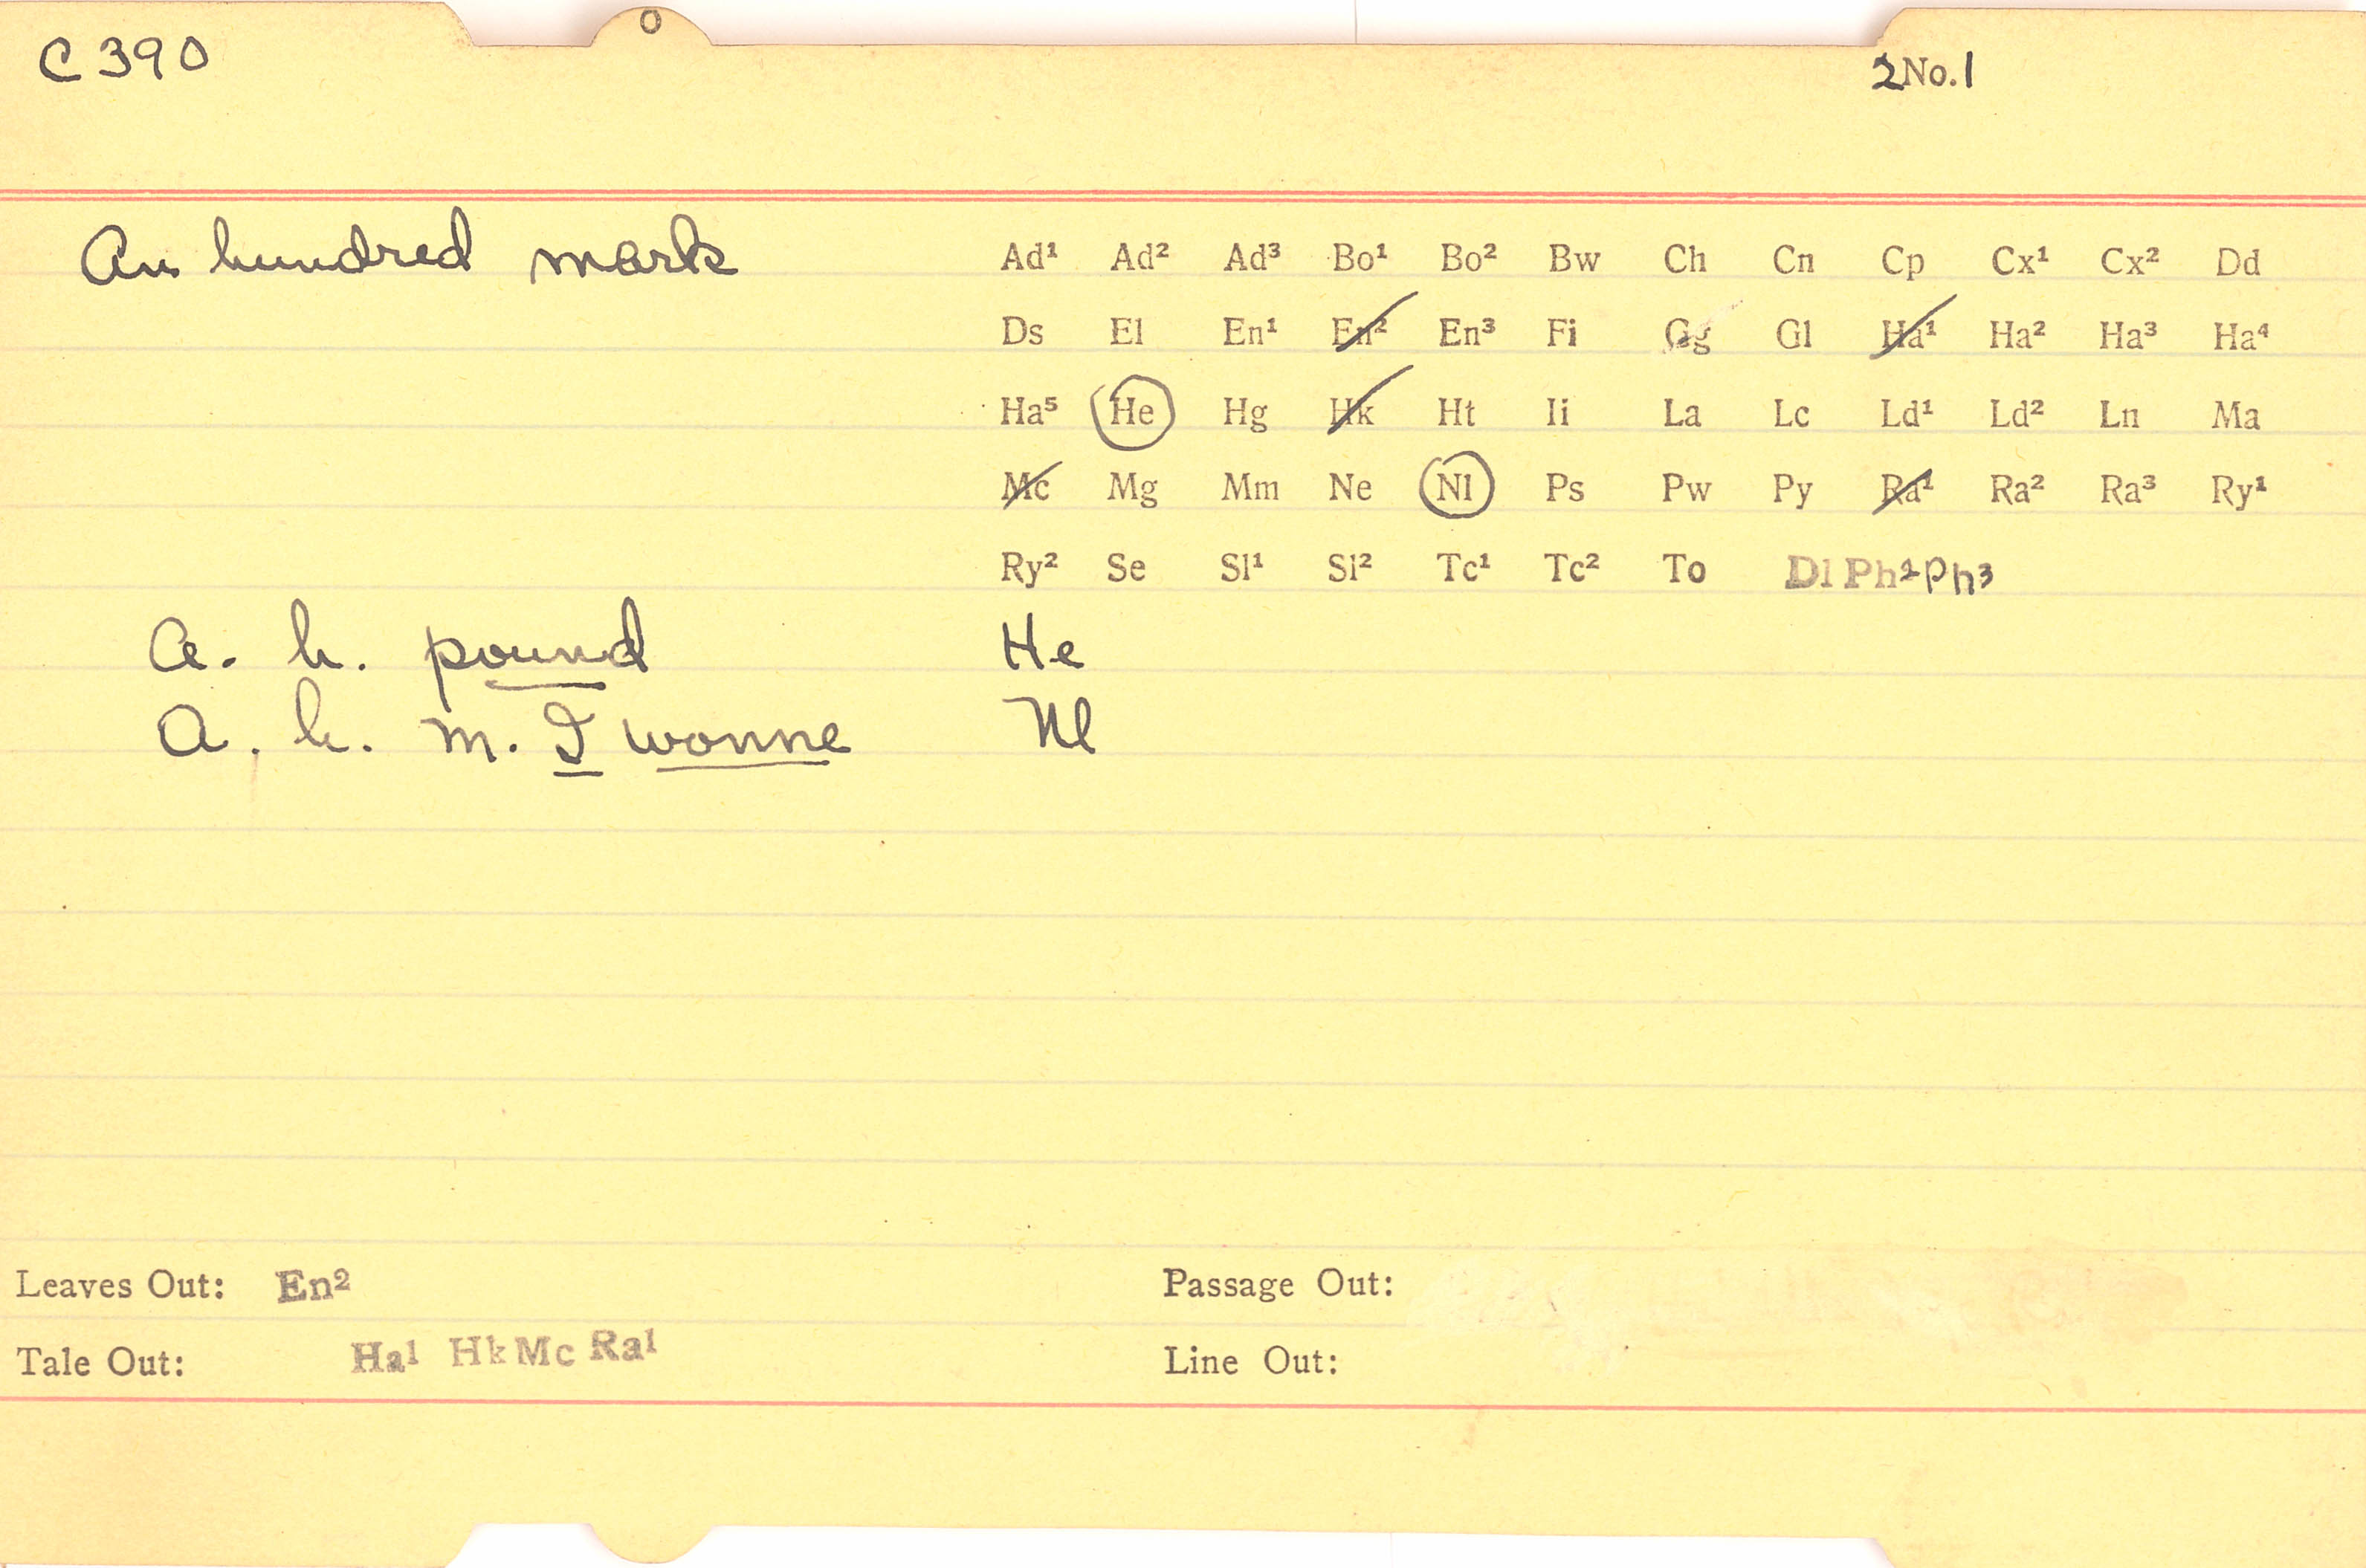 C 390 2No.1
An hundred mark Ad¹ Ad² Ad³ Bo¹ Bo² Bw Ch Cn Cp Cx¹ Cx² Dd
Ds El En¹ En² En³ Fi Gg Gl Ha¹ Ha² Ha³ Ha⁴
Ha⁵ He Hg Hk Ht Ii La Lc Ld¹ Ld² Ln Ma
Mc Mg Mm Ne Nl Ps Pw Py Ra¹ Ra² Ra³ Ry¹
Ry² Se Sl¹ Sl² Tc¹ Tc² To Dl Ph² Ph³
a. h. pound He
a. h. m. I wonne Nl
Leaves Out: En² Passage Out:
Tale Out: Ha¹ Hk Mc Ra¹ Line Out: